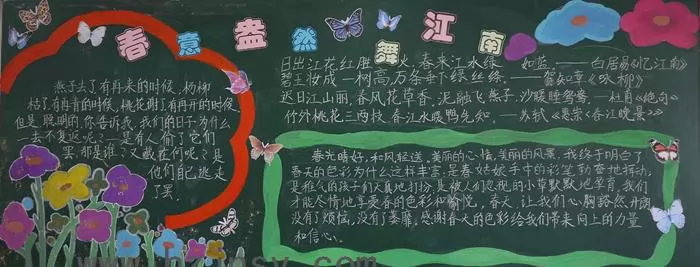 春意盎然舞江南
燕子去了有再来的时候,杨柳
枯了有再青的时候,桃花谢了有再开的时候
但是,聪明的,你告诉我,我们的日子为什么
一去不复返呢?一是有人偷了它们
罢:那是谁?又藏在何呢?是
他们自己逃走
了罢.
日出江花红胜火,春来江水绿如蓝。——白居易《忆江南》
碧玉妆成一树高,万条垂下绿丝绦,——贺知章《咏柳》
迟日江山丽,春风花草香,泥融飞燕子,沙暖睡鸳鸯,——杜甫《绝句》
竹外桃花三两枝,春江水暖鸭先知,——苏轼《惠崇<春江晚景>》
春光晴好,和风轻送,美丽的心情,美丽的风景,我终于明白了
春天的色彩为什么这样丰富,是春姑娘手中的彩笔勤奋地挥动,
是稚气的孩子们天真地打扮,是被人们忽视的小草默默地孕育,我们
才能尽情地享受春的色彩和愉悦,春天,让我们心胸豁然开阔
没有烦恼,没有萎靡,感谢春天的色彩给我们带来向上的力量
和信心.